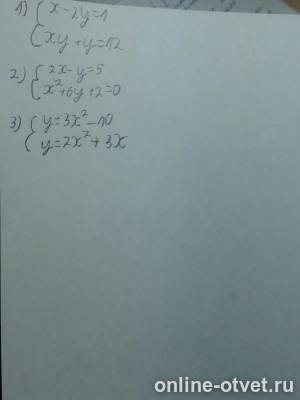 1) { x - 2y = 1
xy + y = 12
2) { 2x - y = 5
x² + 6y + 2 = 0
3) { y = 3x² - 10
y = 2x² + 3x
online-otvet.ru